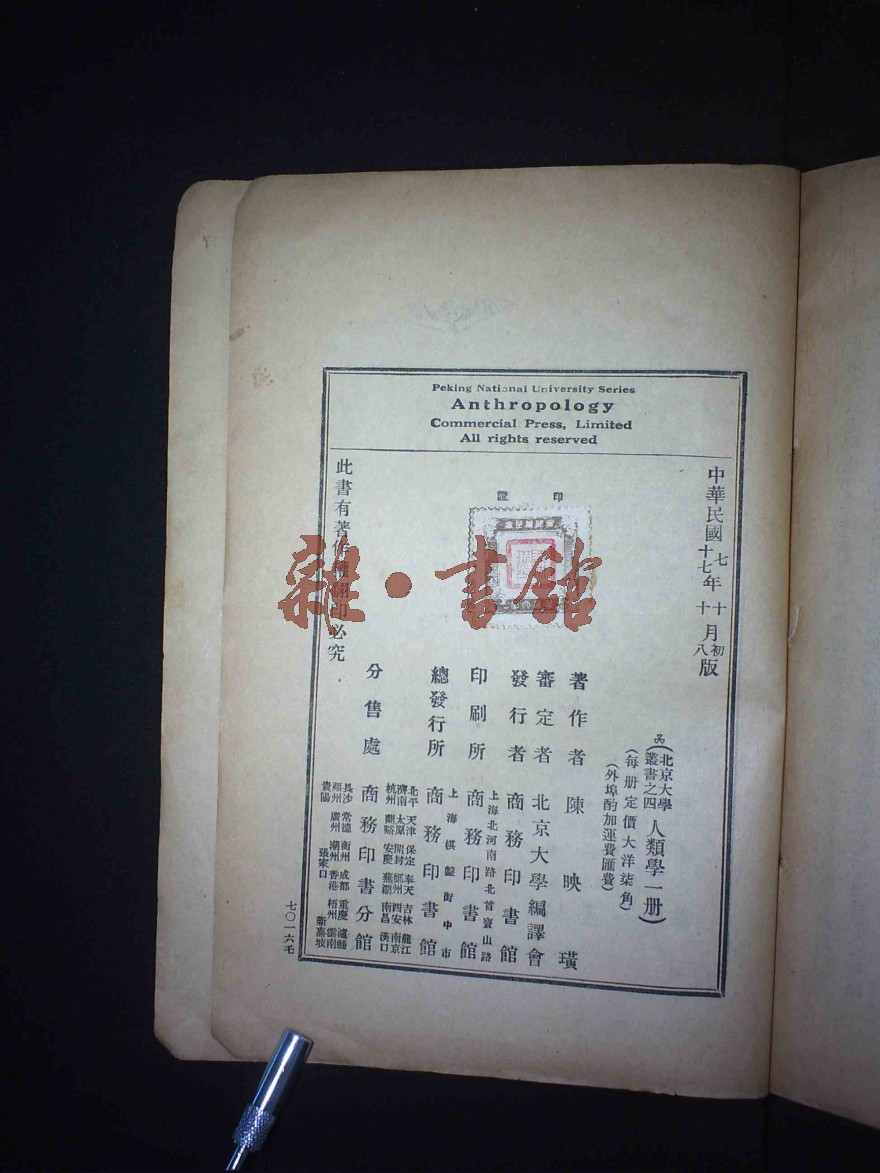 Peking National University Series
Anthropology
Commercial Press, Limited
All rights reserved
中華民國七年十月初版
十七年十月八版
印證
此書有著作權翻印必究
(北京大學叢書之四)人類學一册
(每册定價大洋柒角)
(外埠酌加運費匯費)
著作者 陳映璜
審定者 北京大學編譯會
發行者 商務印書館
上海北河南路北首寶山路
印刷所 商務印書館
上海棋盤街中市
總發行所 商務印書館
北平 天津 保定 奉天 吉林 龍江
濟南 太原 開封 鄭州 西安 南京
杭州 蘭谿 安慶 蕪湖 南昌 漢口
分售處 商務印書分館
長沙 常德 衡州 成都 重慶 瀘縣
福州 廣州 潮州 香港 梧州 雲南
貴陽 張家口 新嘉坡
七〇一六毛
雜·書館